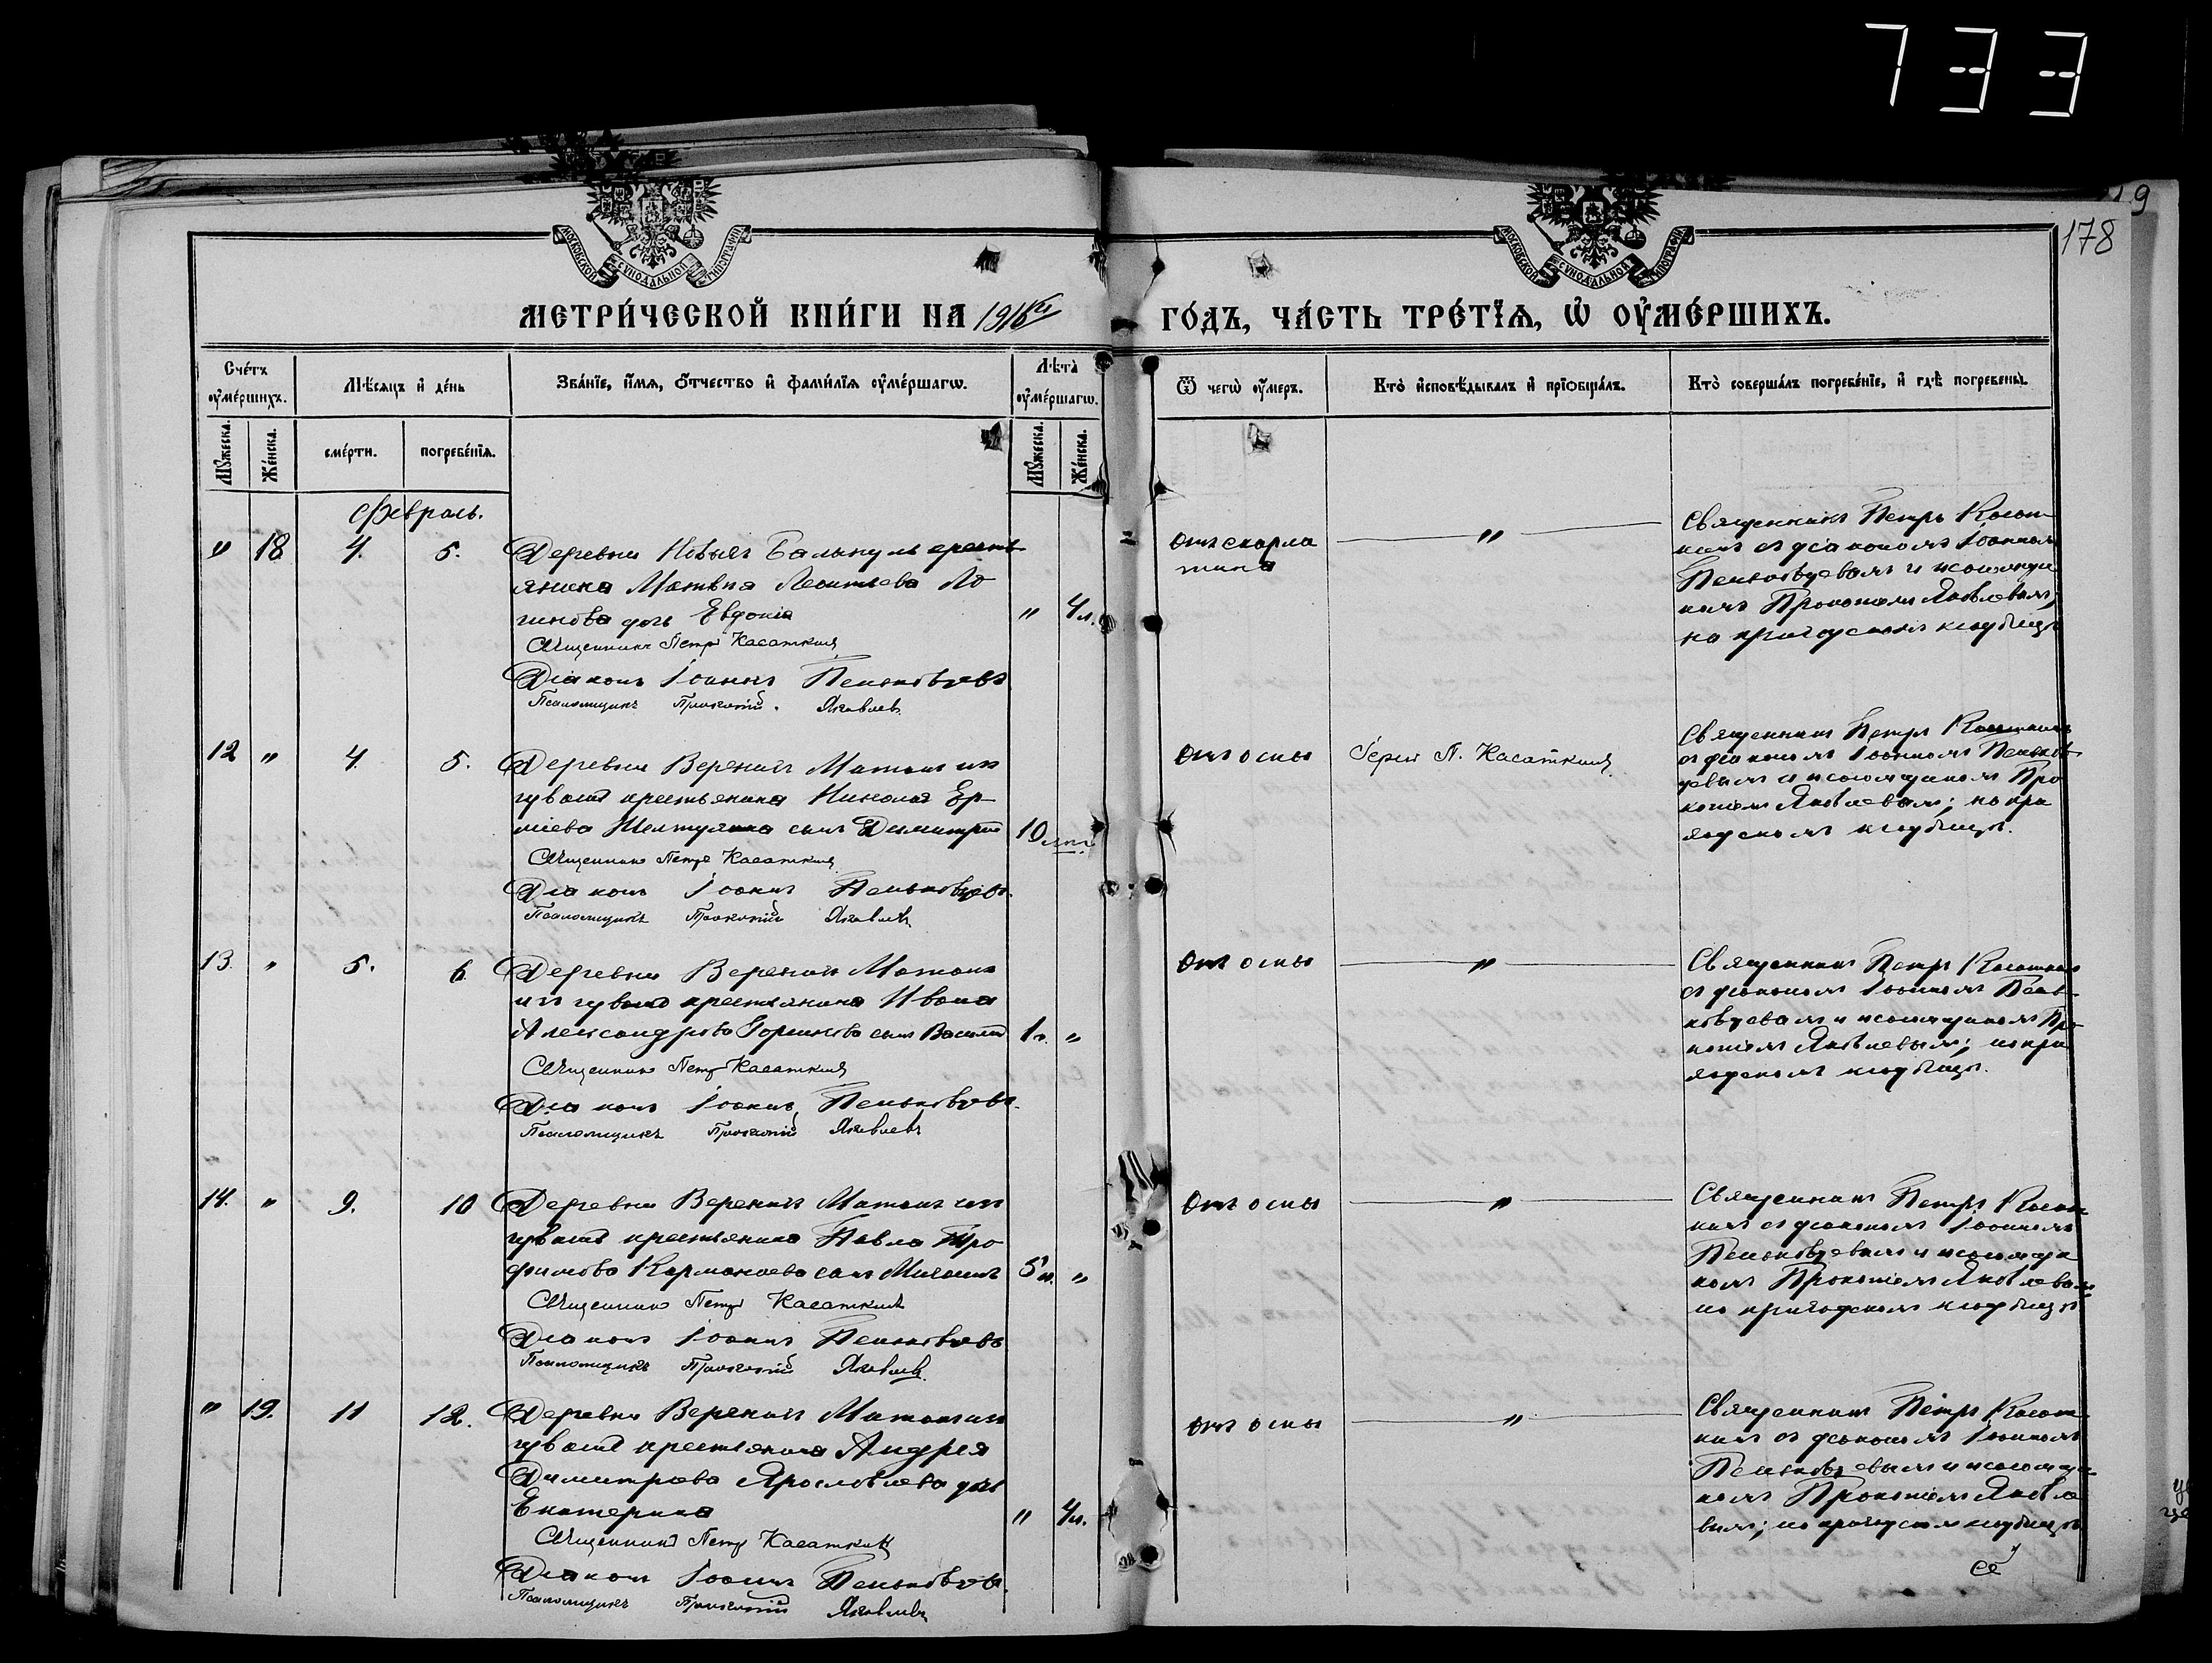 733
9
178
МОСКОВСКОЙ СУНОДАЛЬНОЙ ТИПОГРАФІИ
МОСКОВСКОЙ СУНОДАЛЬНОЙ ТИПОГРАФІИ
МЕТРИ́ЧЕСКОЙ КНИ́ГИ НА 1916й ГО́ДЪ, ЧА́СТЬ ТРЕ́ТІЯ, Ѡ ОУ҆МЕ́РШИХЪ.
Сче́тъ оу҆ме́ршихъ.
Мѣ́сяцъ и҆ де́нь
Зва́ніе, и҆́мя, ѻ҆́тчество и҆ фами́лія оу҆ме́ршагѡ.
Лѣ́та̀ оу҆ме́ршагѡ.
Ѿ чегѡ̀ оу҆́меръ.
Кто̀ и҆сповѣ́дывалъ и҆ пріѻбща́лъ.
Кто̀ соверша́лъ погребе́ніе, и҆ гдѣ̀ погребены̀.
Мꙋ́жеска.
Же́нска.
сме́рти.
погребе́нія.
Мꙋ́жеска.
Же́нска.
Февраль.
" 18 4. 5.
Деревни Новыхъ крестъ
янина Матвѣя Леонтьева Ло
гинова дочь Евдокія
" 4 л.
Священникъ Петръ Касаткинъ
Діаконъ Іоаннъ Пеньковцевъ
Псаломщикъ Прокопій Яковлевъ
отъ скарла
тина
"
Священникъ Петръ Касат
кинъ съ діакономъ Іоанномъ
Пеньковцевымъ и псаломщи
комъ Прокопіемъ Яковлевымъ;
на приходскомъ кладбищѣ
12 " 4. 5.
Деревни Верхнихъ Матакъ из
чувашъ крестьянина Николая Ер
миева сынъ Димитрій
10 лѣтъ
Священникъ Петръ Касаткинъ
Діаконъ Іоаннъ Пеньковцевъ
Псаломщикъ Прокопій Яковлевъ
Отъ оспы
Іерей П. Касаткинъ
Священникъ Петръ Касаткинъ
съ діакономъ Іоанномъ Пеньков
цевымъ и псаломщикомъ Про
копіемъ Яковлевымъ; на при
ходскомъ кладбищѣ.
13. " 5. 6
Деревни Верхнихъ Матакъ
изъ чувашъ крестьянина Ивана
Александрова Горшкова сынъ Василій
1 г. "
Священникъ Петръ Касаткинъ
Діаконъ Іоаннъ Пеньковцевъ
Псаломщикъ Прокопій Яковлевъ
Отъ оспы
"
Священникъ Петръ Касаткинъ
съ діакономъ Іоанномъ Пень
ковцевымъ и псаломщикомъ Про
копіемъ Яковлевымъ; на при
ходскомъ кладбищѣ.
14. " 9. 10
Деревни Верхнихъ Матакъ изъ
чувашъ крестьянина Павла Тро
фимова сынъ Михаилъ
5 л. "
Священникъ Петръ Касаткинъ
Діаконъ Іоаннъ Пеньковцевъ
Псаломщикъ Прокопій Яковлевъ
Отъ оспы
"
Священникъ Петръ Касат
кинъ съ діакономъ Іоанномъ
Пеньковцевымъ и псаломщи
комъ Прокопіемъ Яковлевымъ
на приходскомъ кладбищѣ
" 19. 11 12.
Деревни Верхнихъ Матакъ из
чувашъ крестьянина Андрея
Димитріева Ярославлева дочь
Екатерина
" 4 л.
Священникъ Петръ Касаткинъ
Діаконъ Іоаннъ Пеньковцевъ
Псаломщикъ Прокопій Яковлевъ
отъ оспы
"
Священникъ Петръ Касат
кинъ съ діакономъ Іоанномъ
Пеньковцевымъ и псаломщи
комъ Прокопіемъ Яковле
вымъ; на приходскомъ кладбищѣ